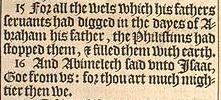 15 For all the wels which his fathers
seruants had digged in the dayes of A-
braham his father, the Philistims had
stopped them, & filled them with earth.
16 And Abimelech said vnto Isaac,
Goe from vs: for thou art much migh-
tier then we.